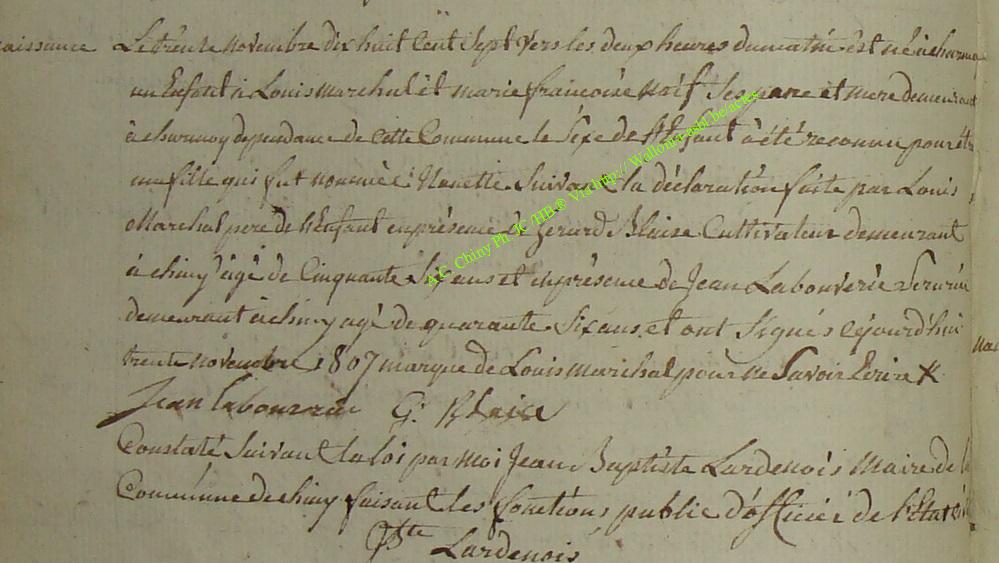 naissance Le trente novembre dix huit Cent Sept vers les deux heures du matin est né à charm
un Enfant à Louis marchal et marie francoise Noif Ses pere et mere demeurant
à charmoy dependance de cette Commune le Sexe de l'Enfant à été reconnu pour êtr
une fille qui fut nommée Nanette Suivant la déclaration faite par Louis
Marchal pere de l'Enfant en présence de Gerard Blaise Cultivateur demeurant
à chiny âgé de Cinquante Six ans et en présence de Jean Labouverie Serurie
demeurant à chiny agé de quarante Six ans et ont Signés cejourd'hui
trente novembre 1807 marque de Louis Marchal pour ne Savoir Ecrire X
Jean labouverie G: Blaise
Constaté Suivant la loi par moi Jean Baptiste Lardenois Maire de la
Commune de chiny faisant les fonctions public d'officier de l'Etat civil
Bte Lardenois
A.C. Chiny Ph. JC /HB® Via http:// Wallonia-asbl.be/actes